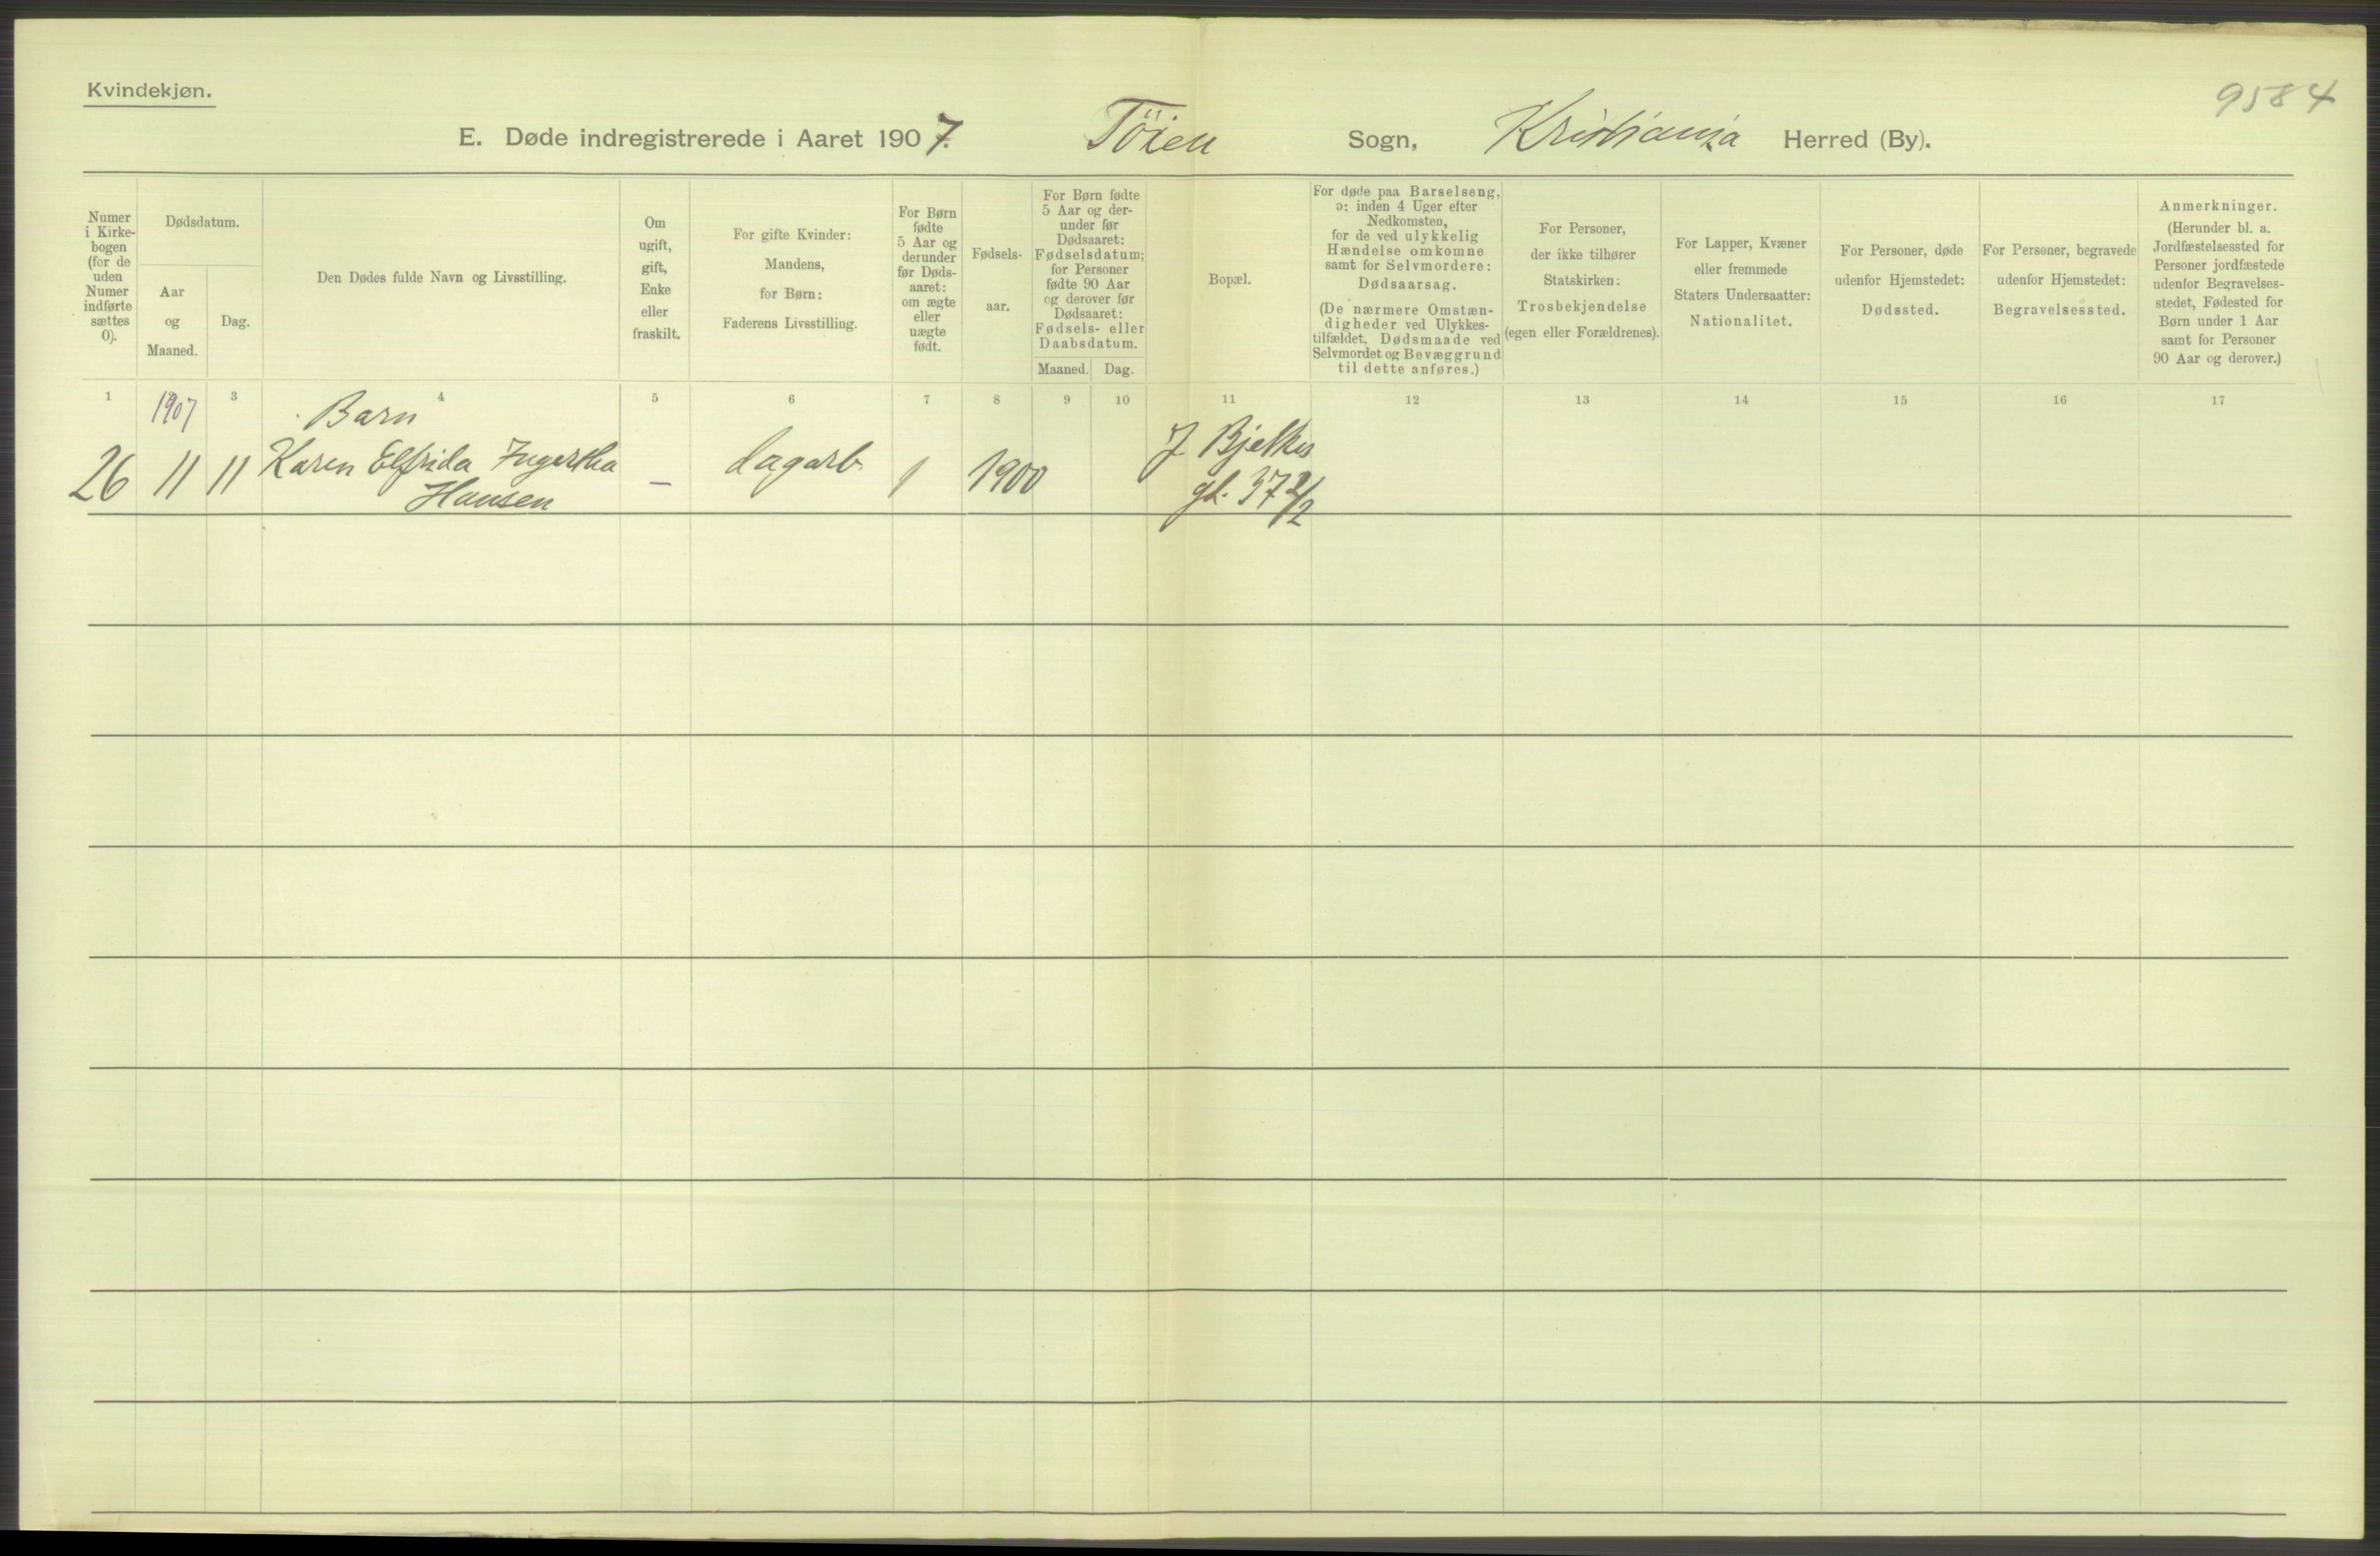 Kvindekjøn.
9584
E. Døde indregistrerede i Aaret 1907. Töien Sogn, Kristiania Herred (By).
Numer
i Kirke-
bogen
(for de
uden
Numer
indførte
sættes
0).
Dødsdatum.
Aar
og
Maaned.
Dag.
Den Dødes fulde Navn og Livsstilling.
Om
ugift,
gift,
Enke
eller
fraskilt.
For gifte Kvinder:
Mandens,
for Børn:
Faderens Livsstilling.
For Børn
fødte
5 Aar og
derunder
før Døds-
aaret:
om ægte
eller
uægte
født.
Fødsels-
aar.
For Børn fødte
5 Aar og der-
under før
Dødsaaret:
Fødselsdatum;
for Personer
fødte 90 Aar
og derover før
Dødsaaret:
Fødsels- eller
Daabsdatum.
Maaned. Dag.
Bopæl.
For døde paa Barselseng,
ɔ: inden 4 Uger efter
Nedkomsten,
for de ved ulykkelig
Hændelse omkomne
samt for Selvmordere:
Dødsaarsag.
(De nærmere Omstæn-
digheder ved Ulykkes-
tilfældet, Dødsmaade ved
Selvmordet og Bevæggrund
til dette anføres.)
For Personer,
der ikke tilhører
Statskirken:
Trosbekjendelse
(egen eller Forældrenes).
For Lapper, Kvæner
eller fremmede
Staters Undersaatter:
Nationalitet.
For Personer, døde
udenfor Hjemstedet:
Dødssted.
For Personer, begravede
udenfor Hjemstedet:
Begravelsessted.
Anmerkninger.
(Herunder bl. a.
Jordfæstelsessted for
Personer jordfæstede
udenfor Begravelses-
stedet, Fødested for
Børn under 1 Aar
samt for Personer
90 Aar og derover.)
1 1907 3 4 5 6 7 8 9 10 11 12 13 14 15 16 17
Barn
26 11 11 Karen Elfrida Ingertha — dagarb. 1 1900 J. Bjelkes
Hansen gd. 37 2/2